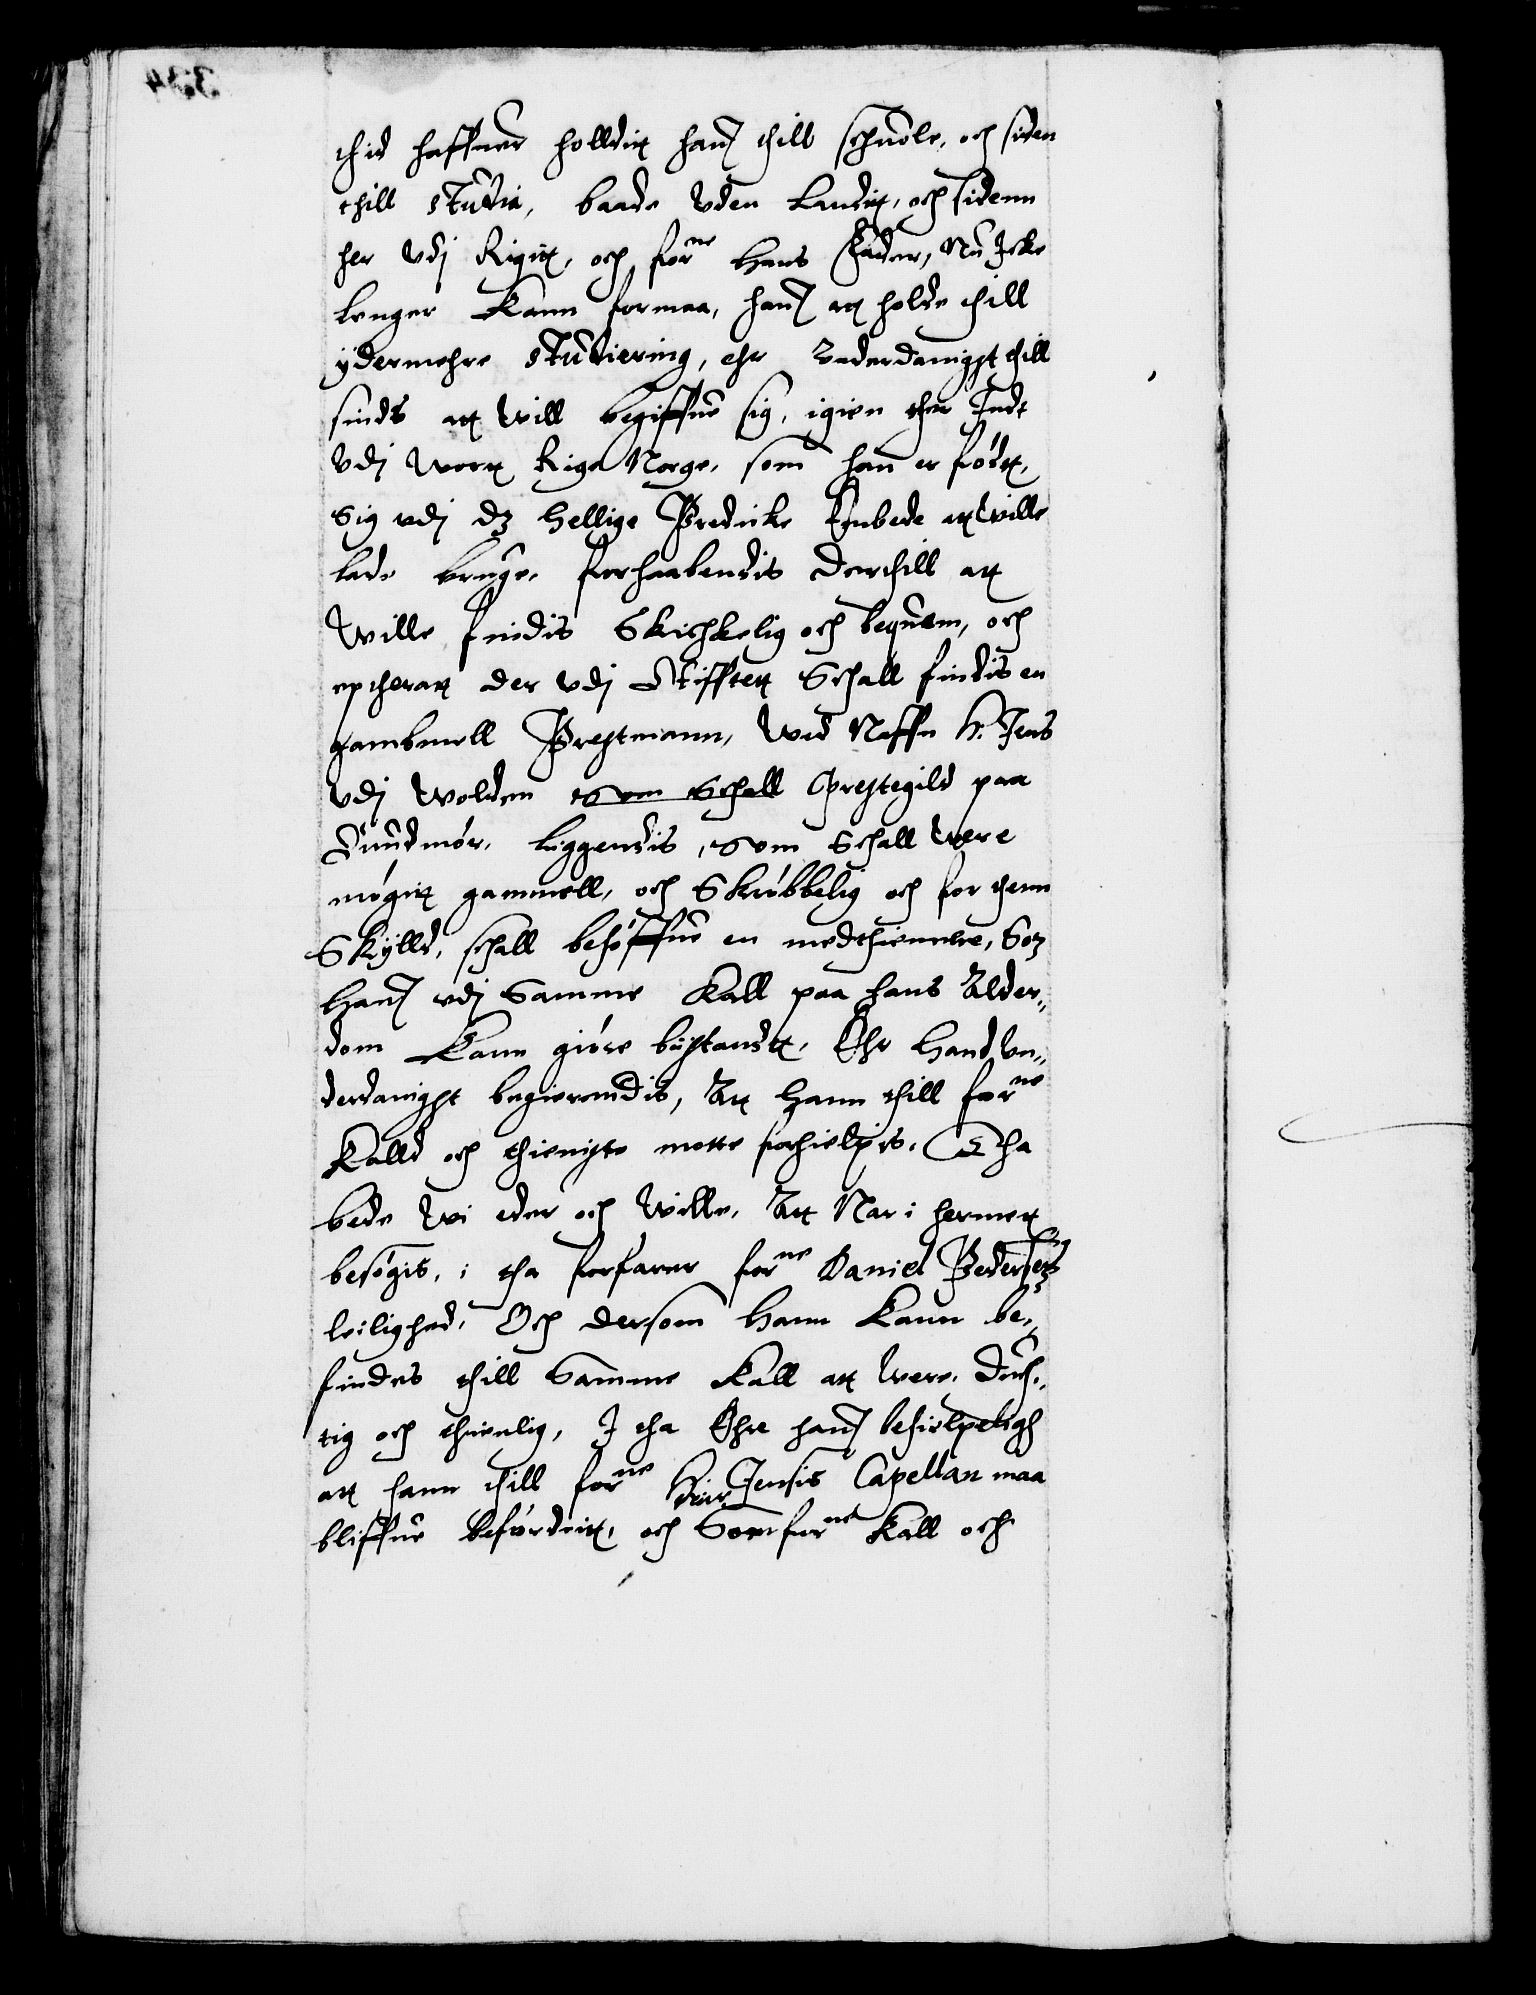 thid haffuer holldit hanz thill schuole, och siden
thill studia, baade Vden Landz, och sidenn
her Vdj Rigit, och forne Hans Fader, Nu Icke
lenger Kann formaa, hanz att holde thill
ydermehre studiering, ehr Vnderdanigst thill
sinds att Will begiffue sig, igien ther Indt
Vdj Wort Rige Norge, som han er født,
Sig udj dz Hellige Predicke Embede att Wille
lade bruge, forhaabendis Derthill att
Wille findis Skichkelig och bequem, och
epttherat der Vdj Stifftet Schall findis en
gambmell Prestmann, Wed Naffn H. Jens
Vdj Wolden som Schall Prestegild paa
Sundmør, liggendis, Som Schall Were
møgit gammell, och Skrøbbelig och for thenn
Skylld, schall behøffue en medthiennere, Som
Hanz udj Samme Kall paa hans Alder,,
dom Kann giøre bijstandt, Ehr Hand Vn,,
derdanigst begierendis, Att Hann thill forne
Kalld och thieniste motte forhielpis. Tha
bede Wi eder och Wille, Att Nar i hermet
besøgis, i tha forfarer forne Daniel Pedersens
leilighed, Och dersom Hann Kann be,,
findes thill Samme Kall att Were, duch,,
tig och thienlig, I tha Ehre hanz behielpeligh
att hann thill forne Herr Jensis Capellan maa
bliffue befordrit, och Som forne Kall och